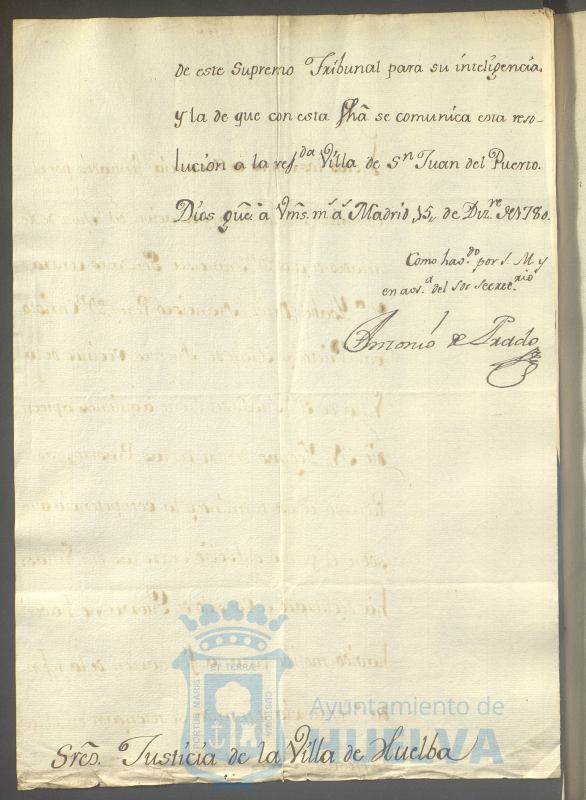 de este Supremo Tribunal para su inteligencia,
y la de que con esta fhã se comunica esta reso-
lucion a la refda Villa de Sn Juan del Puerto.
Dios gue à Vms. ms. as. Madrid 15,, de Dizre de 1780.
Como havdo por S. M. y
en aus.a del Sor Secretrio
Antonio de Prado
ET TERRÆ
PORTUS MARIS
CUSTODIA
Ayuntamiento de
HUELVA
Sres. Justicia de la Villa de Huelba